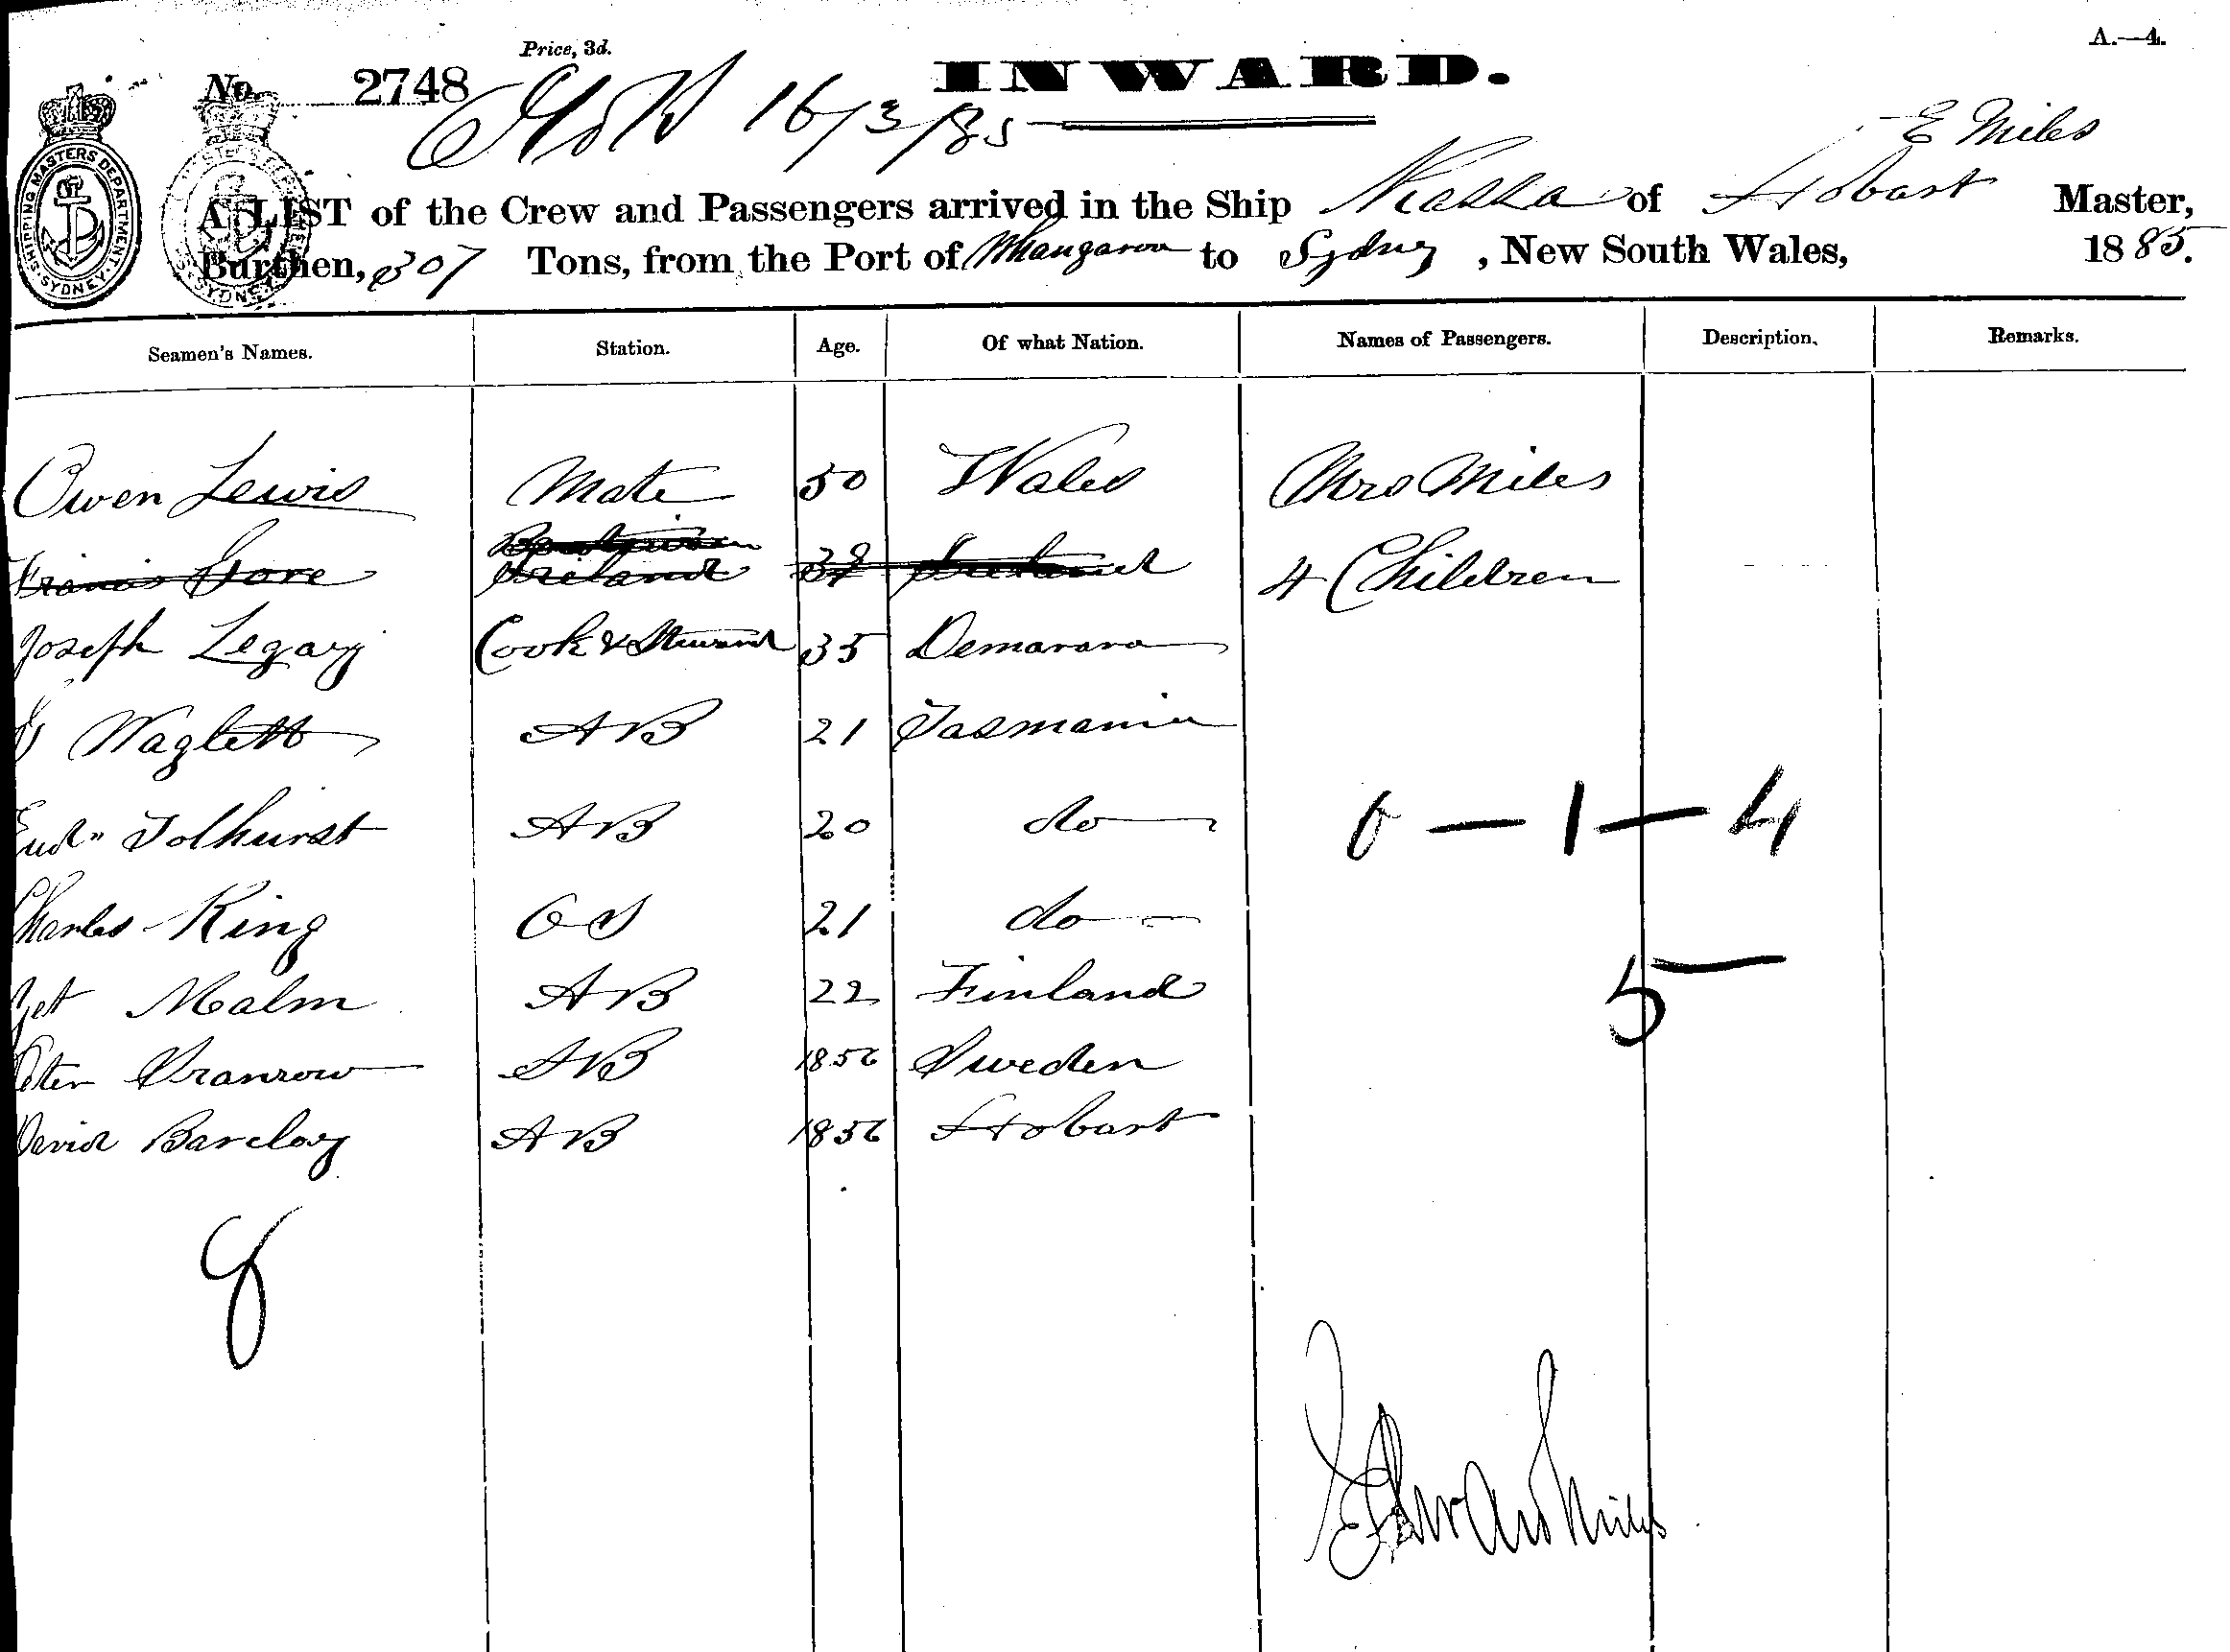 Price, 3d.
A.—4.
No. 2748
INWARD.
16/3/85
E Miles
A LIST of the Crew and Passengers arrived in the Ship of Hobart Master,
Burthen, 307 Tons, from the Port of Whangaroa to Sydney, New South Wales, 1885.
SHIPPING MASTERS DEPARTMENT SYDNEY
Seamen's Names. Station. Age. Of what Nation. Names of Passengers. Description. Remarks.
Owen Lewis Mate 50 Wales Mrs Miles
Francis Gore Boatswain Ireland 38 Ireland 4 Children
Joseph Legary Cook & Steward 35 Demarara
Waglett AB 21 Tasmania
Tolhurst AB 20 do
0 — 1 — 4
Charles King OS 21 do
Malm AB 22 Finland
5
Peter AB 1856 Sweden
David Barclay AB 1856 Hobart
8
Edward Miles